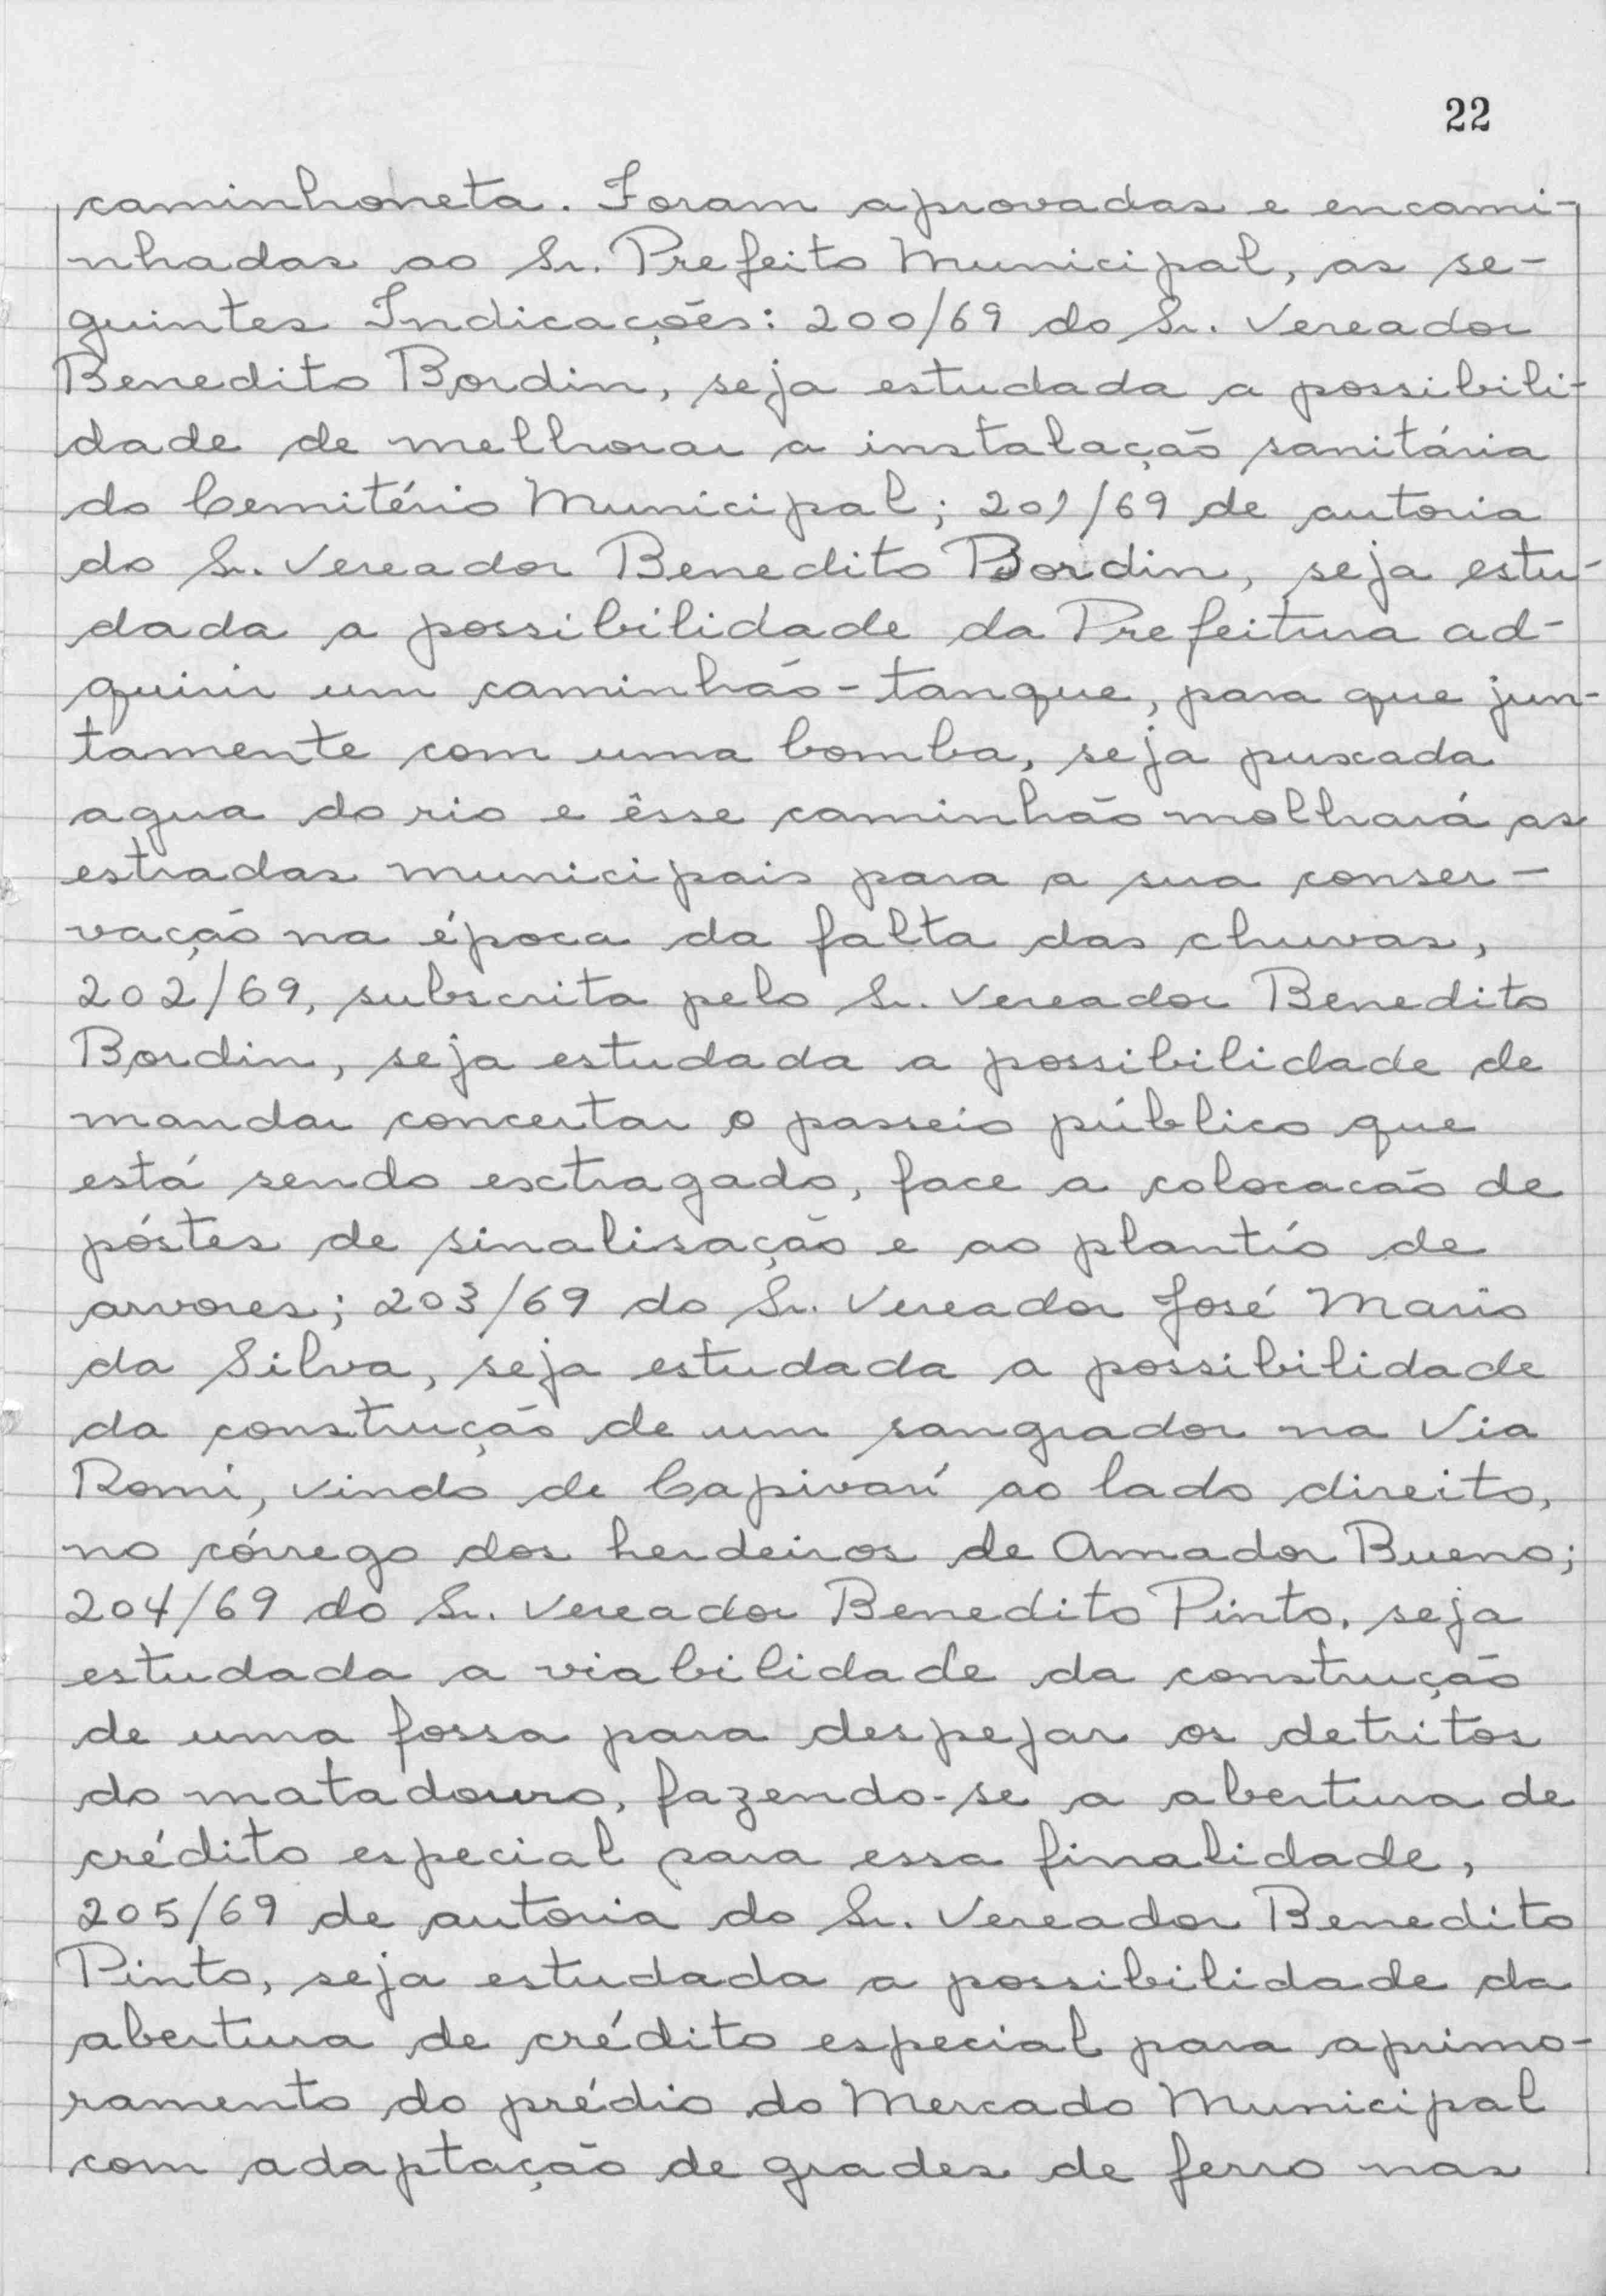 22
caminhoneta. Foram aprovadas e encami-
nhadas ao Sr. Prefeito Municipal, as se-
guintes Indicações: 200/69 do Sr. Vereador
Benedito Bordin, seja estudada a possibili-
dade de melhorar a instalação sanitária
do Cemitério Municipal; 201/69 de autoria
do Sr. Vereador Benedito Bordin, seja estu-
dada a possibilidade da Prefeitura ad-
quirir um caminhão-tanque, para que jun-
tamente com uma bomba, seja puxada
agua do rio e êsse caminhão molhará as
estradas municipais para a sua conser-
vação na época da falta das chuvas,
202/69, subscrita pelo Sr. Vereador Benedito
Bordin, seja estudada a possibilidade de
mandar concertar o passeio público que
está sendo extragado, face a colocacão de
póstes de sinalisação e ao plantío de
arvores; 203/69 do Sr. Vereador José Mario
da Silva, seja estudada a possibilidade
da construção de um sangrador na Via
Romi, vindo de Capivarí ao lado direito,
no córrego dos herdeiros de Amador Bueno;
204/69 do Sr. Vereador Benedito Pinto, seja
estudada a viabilidade da construção
de uma fossa para despejar os detritos
do matadouro, fazendo-se a abertura de
crédito especial para essa finalidade,
205/69 de autoria do Sr. Vereador Benedito
Pinto, seja estudada a possibilidade da
abertura de crédito especial para aprimo-
ramento do prédio do Mercado Municipal
com adaptação de grades de ferro nas